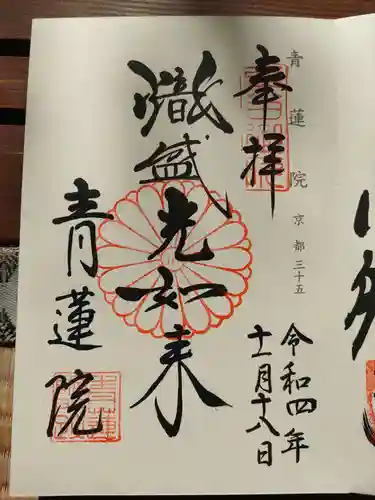 青蓮院 京都 三十五
奉拝
熾盛光如来
青蓮院
令和四年
十一月十八日